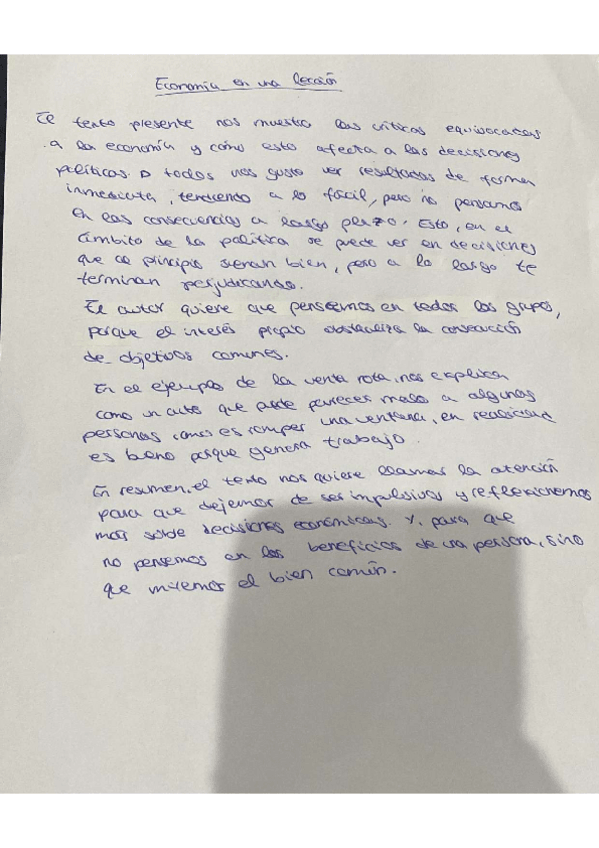 Economía en una lección
El texto presente nos muestra las críticas equivocadas
a la economía y cómo esto afecta a las decisiones
políticas. A todos nos gusta ver resultados de forma
inmediata, tendiendo a lo fácil, pero no pensamos
en las consecuencias a largo plazo. Esto, en el
ámbito de la política se puede ver en decisiones
que al principio suenan bien, pero a lo largo te
terminan perjudicando.
El autor quiere que pensemos en todos los grupos,
porque el interés propio obstaculiza la consecución
de objetivos comunes.
En el ejemplo de la venta rota, nos explica
como un acto que puede parecer malo a algunas
personas como es romper una ventana, en realidad
es bueno porque genera trabajo.
En resumen, el texto nos quiere llamar la atención
para que dejemos de ser impulsivos y reflexionemos
más sobre decisiones económicas. Y, para que
no pensemos en los beneficios de una persona, sino
que miremos el bien común.